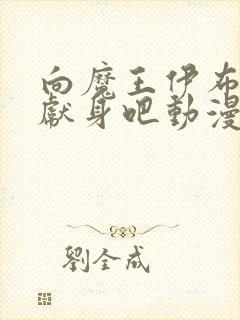 向魔王伊布
獻身吧動漫
劉全成